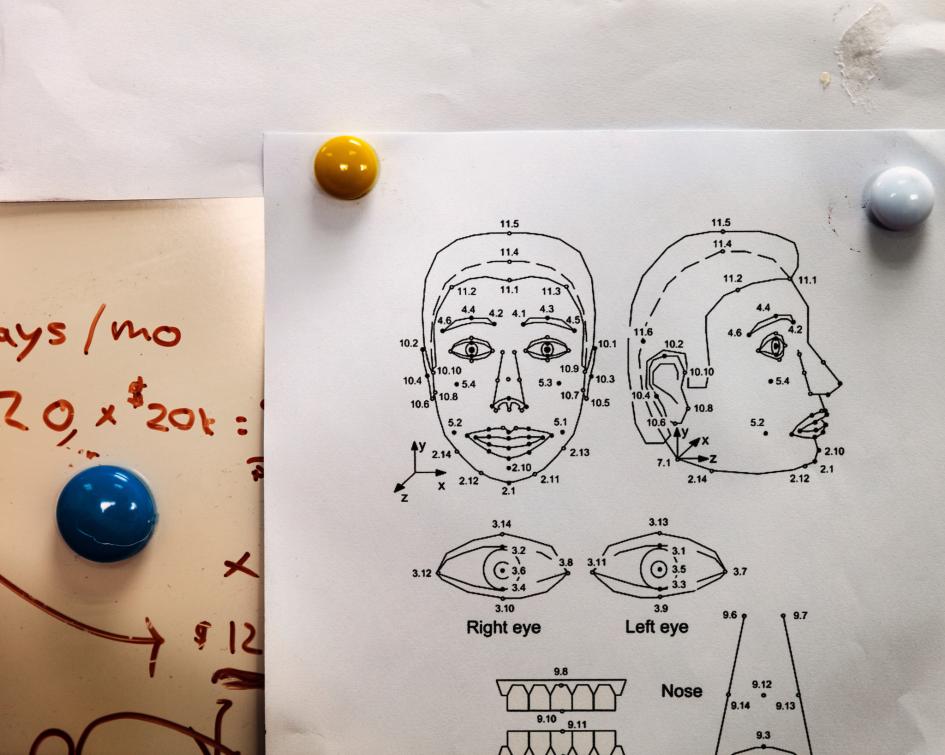 ays/mo
20, x $20k =
x
$12
11.5
11.4
11.2 11.1 11.3
4.4 4.2 4.1 4.3
4.6 4.5
10.2 10.1
10.10 10.9
10.4 5.4 5.3 10.3
10.6 10.8 10.7 10.5
5.2 5.1
2.14 2.13
2.10
2.12 2.11
2.1
y
x
z
11.5
11.4
11.2 11.1
4.4
4.6 4.2
11.6
10.2
10.10
5.4
10.4
10.8
10.6
5.2
y
x
z
7.1
2.10
2.1
2.14 2.12
3.14
3.2
3.12 3.6 3.8
3.4
3.10
Right eye
3.13
3.1
3.11 3.5 3.7
3.3
3.9
Left eye
9.8
9.10
9.11
Nose
9.6 9.7
9.12
9.14 9.13
9.3